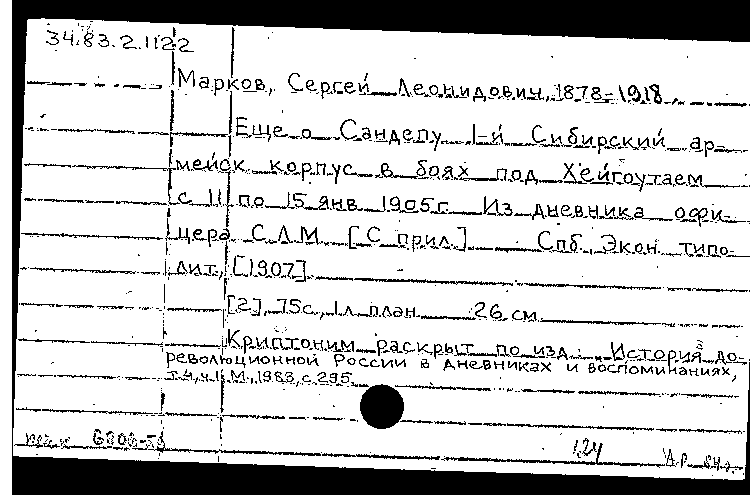 34.83.2.1122
Марков, Сергей Леонидович, 1878-1918.
Еще о Сандепу 1-й Сибирский ар-
мейск корпус в боях под Хейгоутаем
с 11 по 15 янв 1905г. Из дневника офи-
цера С.Л.М. [С прил.] Спб, Экон. типо-
лит., [1907].
[2], 75с., 1л. план. 26 см.
Криптоним раскрыт по изд.: История до-
революционной России в дневниках и воспоминаниях,
т.4, ч.1. М., 1983, с.295.
124